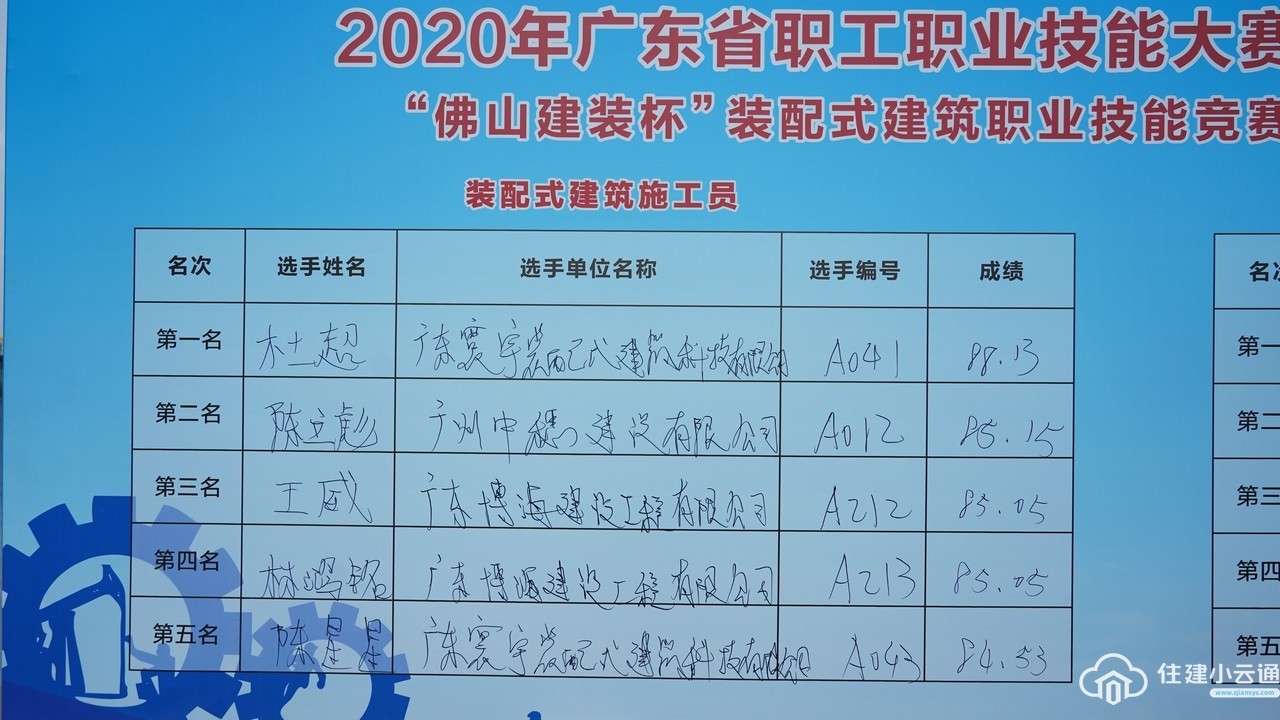 2020年广东省职工职业技能大赛
“佛山建装杯”装配式建筑职业技能竞赛
装配式建筑施工员
名次 选手姓名 选手单位名称 选手编号 成绩
第一名 杜超 广东寰宇装配式建筑科技有限公司 A041 88.13
第二名 陈立彪 广州中穗建设有限公司 A012 85.15
第三名 王威 广东博海建设工程有限公司 A212 85.05
第四名 林鸿铭 广东博海建设工程有限公司 A213 85.05
第五名 陈星星 广东寰宇装配式建筑科技有限公司 A043 84.53
名次
第一
第二
第三
第四
第五
住建小云通
www.zjianxys.com